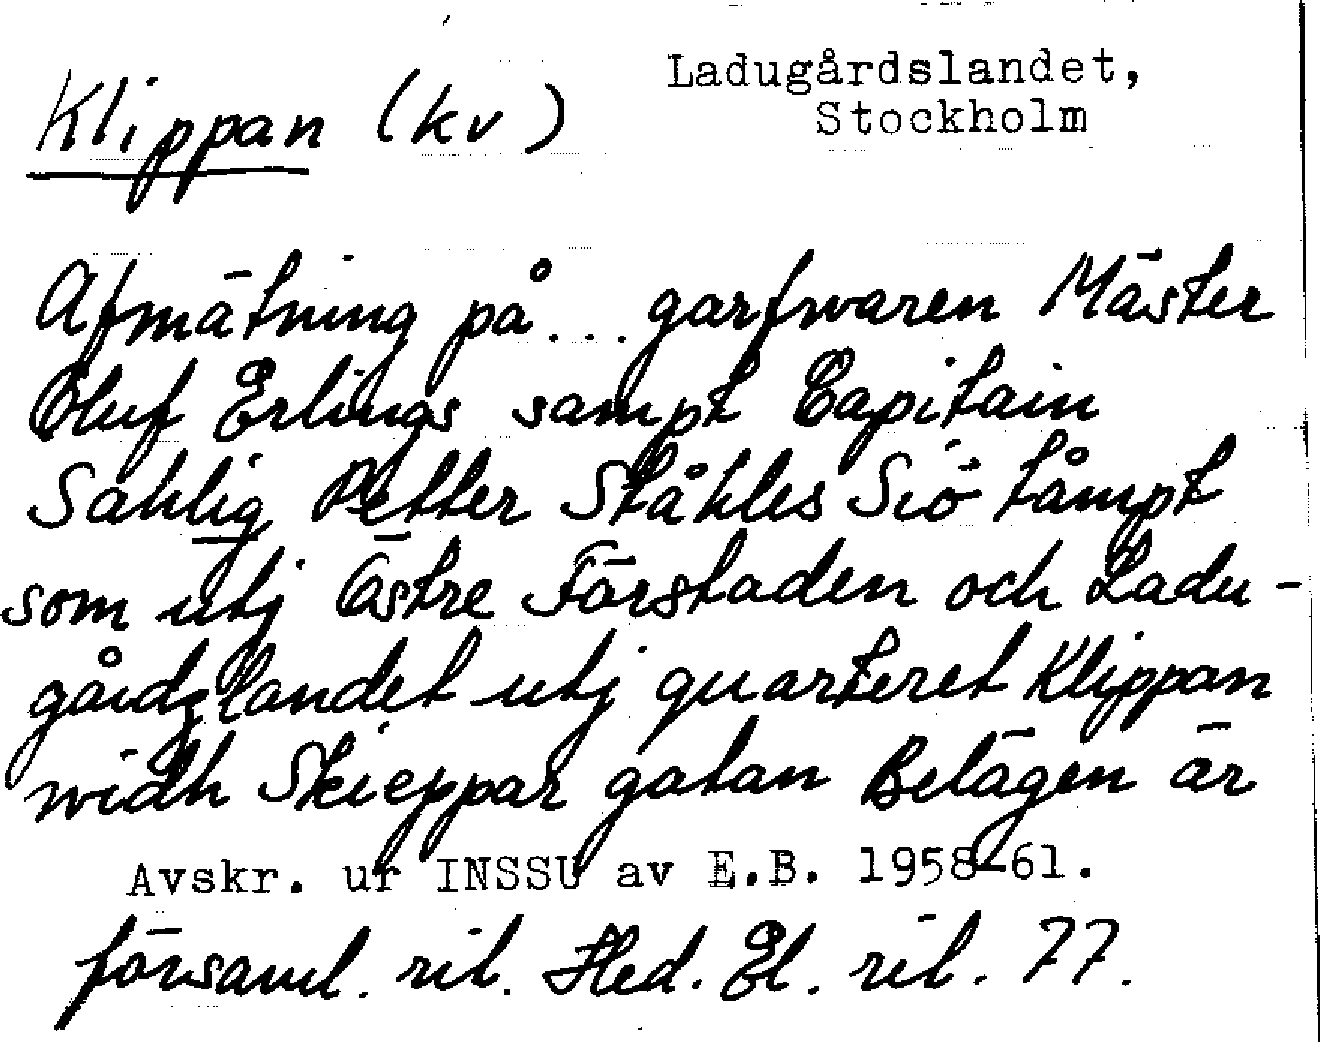 Klippan (kv)
Ladugårdslandet,
Stockholm
Afmätning på... garfwaren Mäster
Oluf Erlings sampt Capitain
Sahlig Petter Ståhles Siö tåmpt
som utj Östre Förstaden och Ladu-
gårdzlandet utj quarteret Klippan
widh Skieppar gatan Belägen är
Avskr. ur INSSU av E.B. 1958-61.
församl. rit. Hed. El. rit. 77.